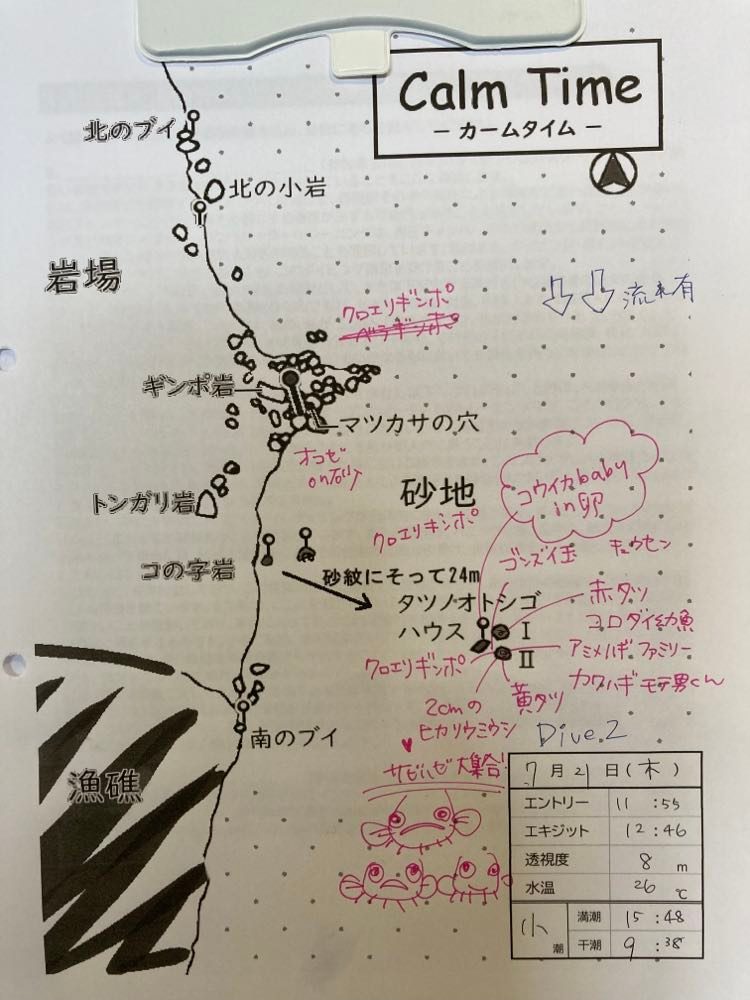 Calm Time
― カームタイム ―
北のブイ
北の小岩
岩場
流れ有
クロエリギンポ
ベラギンポ
ギンポ岩
マツカサの穴
オコゼ
on砂
砂地
コウイカbaby
in卵
トンガリ岩
クロエリギンポ
ゴンズイ玉
キュウセン
コの字岩
砂紋にそって24m
タツノオトシゴ
ハウス
Ⅰ
Ⅱ
赤タツ
コロダイ幼魚
アミメハギファミリー
カワハギモテ男くん
クロエリギンポ
黄タツ
2cmの
ヒカリウミウシ
南のブイ
漁礁
サビハゼ大集合!
Dive.2
7月21日(木)
エントリー 11:55
エキジット 12:46
透視度 8m
水温 26℃
小潮
満潮 15:48
干潮 9:38